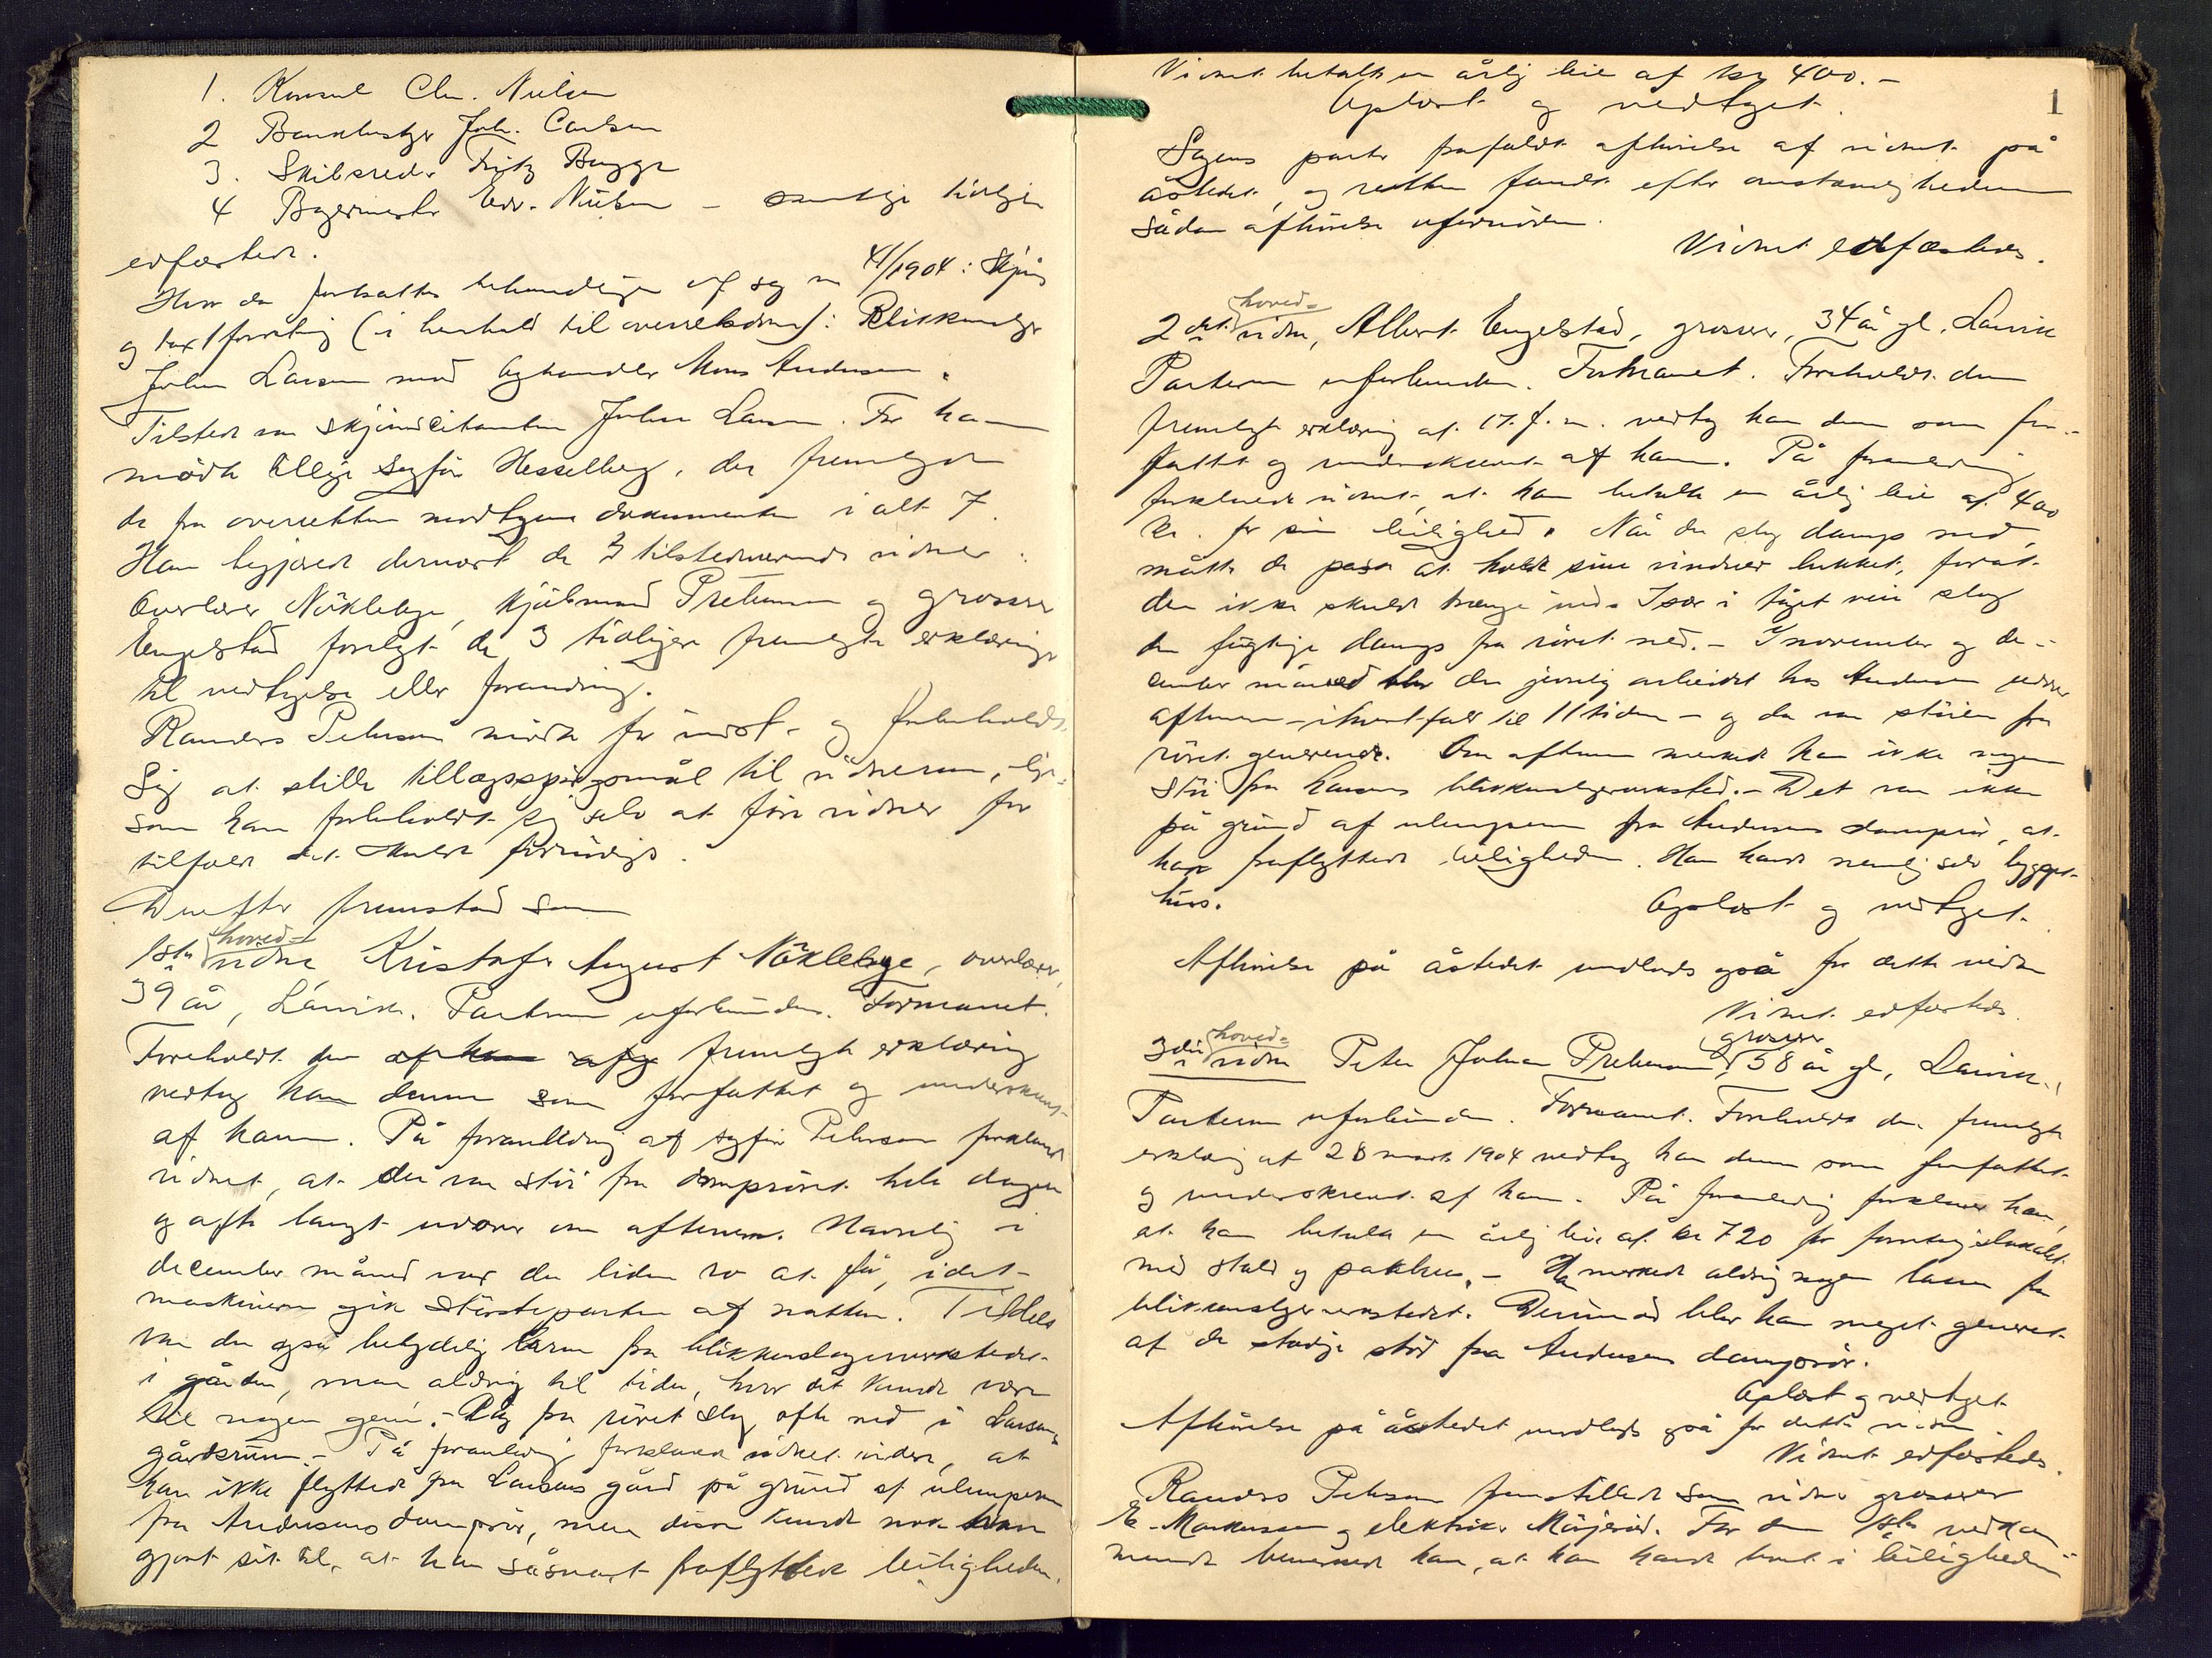 1. Konsul Chr. Nielsen
2 Bankbestyr Joh. Carlsen
3. Skibsreder Fritz Bugge
4 Bagermester Edv. Nielsen – samtlige tidligere
edfæstede.
Hvor da fortsattes behandlingen af sag no 4/1904: Skjøns
og taxtforretning (i henhold til overretsdom): Blikkenslager
Johan Larsen mod byhandler Mons Andersen.
Tilstede var skjønscitanten Johan Larsen. For ham
mødte tillige sagfør Hesselberg, der fremlagde
de fra overretten modtagne dokumenter i alt 7.
Han begjærede dernæst de 3 tilstedeværende vidner:
Overlærer Nøkleby, kjøbmand Prebensen og grosser
Engelstad forelagt de 3 tidligere fremlagte erklæringer
til vedtagelse eller forandring.
Randers Pehrson mødte for indst. og forbeholdt
sig at stille tillægsspørgsmål til vidnerne, lige-
som han forbeholdt sig selv at føre vidner for
tilfælde det skulde fornødiges.
Derefter fremstod som
1ste hoved-
vidne Kristofer August Nøklebye, overlærer,
39 år, Larvik. Parterne uforbunden. Formanet.
Foreholdt den fremlagte erklæring
vedtog han denne som forfattet og underskrevet
af ham. På foranledning af sagfør Pehrson forklarede
vidnet, at der var støi fra damprøret hele dagen
og ofte langt udover om aftenen. Navnlig i
december måned var der liden ro at få, idet
maskinerne gik størsteparten af natten. Tildels
var der også betydelig larm fra blikkenslagerverkstedet
i gården, men aldrig til tider, hvor det kunde være
til nogen gene. – Røg fra røret slog ofte ned i Larsens
gårdsrum. – På foranledning forklarede vidnet videre, at
han ikke flyttede fra Larsens gård på grund af ulemperne
fra Andersens damprør, men disse kunde nok have
gjort sit til, at han såsnart fraflyttede leiligheden.
Vidnet betalte en årlig leie af kr 400.–
Oplæst og vedtaget.
1
Sagens parter frafaldt afhørelse af vidnet på
åstedet, og retten fandt efter omstændighederne
sådan afhørelse ufornøden.
Vidnet edfæstedes.
hoved-
2det vidne, Albert Engelstad, grosser, 34 år gl. Larvik
Parterne uforbunden. Formanet. Foreholdt den
fremlagte erklæring af 17. f.m. vedtog han den som for-
fattet og underskrevet af ham. På foranledning
forklarede vidnet, at han betalte en årlig leie af 400
kr. for sin leilighed. Når der slog damp ned,
måtte de passe at holde sine vinduer lukket, forat
den ikke skulde trænge ind. Især i tåget veir slog
den fugtige damp fra røret ned. – I november og de-
cember måned blev der jevnlig arbeidet hos Andersen udover
aftenen – i hvert fald til 11 tiden – og da var støien fra
røret generende. Om aftenen merkede han ikke nogen
støi fra Larsens blikkenslagerverksted. – Det var ikke
på grund af ulemperne fra Andersens damprør, at
han fraflyttede leiligheden. Han havde nemlig selv bygget
hus.
Oplæst og vedtaget.
Afhørelse på åstedet undlodes også for dette vidne
Vidnet edfæstedes.
hoved- grosser
3die vidne Peter Johan Prebensen, 58 år gl, Larvik,
Parterne uforbunden. Formanet. Foreholdt den fremlagte
erklæring af 28 marts 1904 vedtog han denne som forfattet
og underskrevet af ham. På foranledning forklarer han,
at han betalte en årlig leie af kr 720 for forretningslokalet
med stald og pakhus. – Han merkede aldrig nogen larm fra
blikkenslagerverkstedet. Derimod blev han meget generet
af de stadige stød fra Andersens damprør.
Oplæst og vedtaget
Afhørelse på åstedet undlodes også for dette vidne
Vidnet edfæstedes.
Randers Pehrson fremstillede som vidner grosserer
E. Markussen og elektriker Mørjerød. For den 1stes vedkom-
mende bemerkede han, at han havde boet i leiligheden